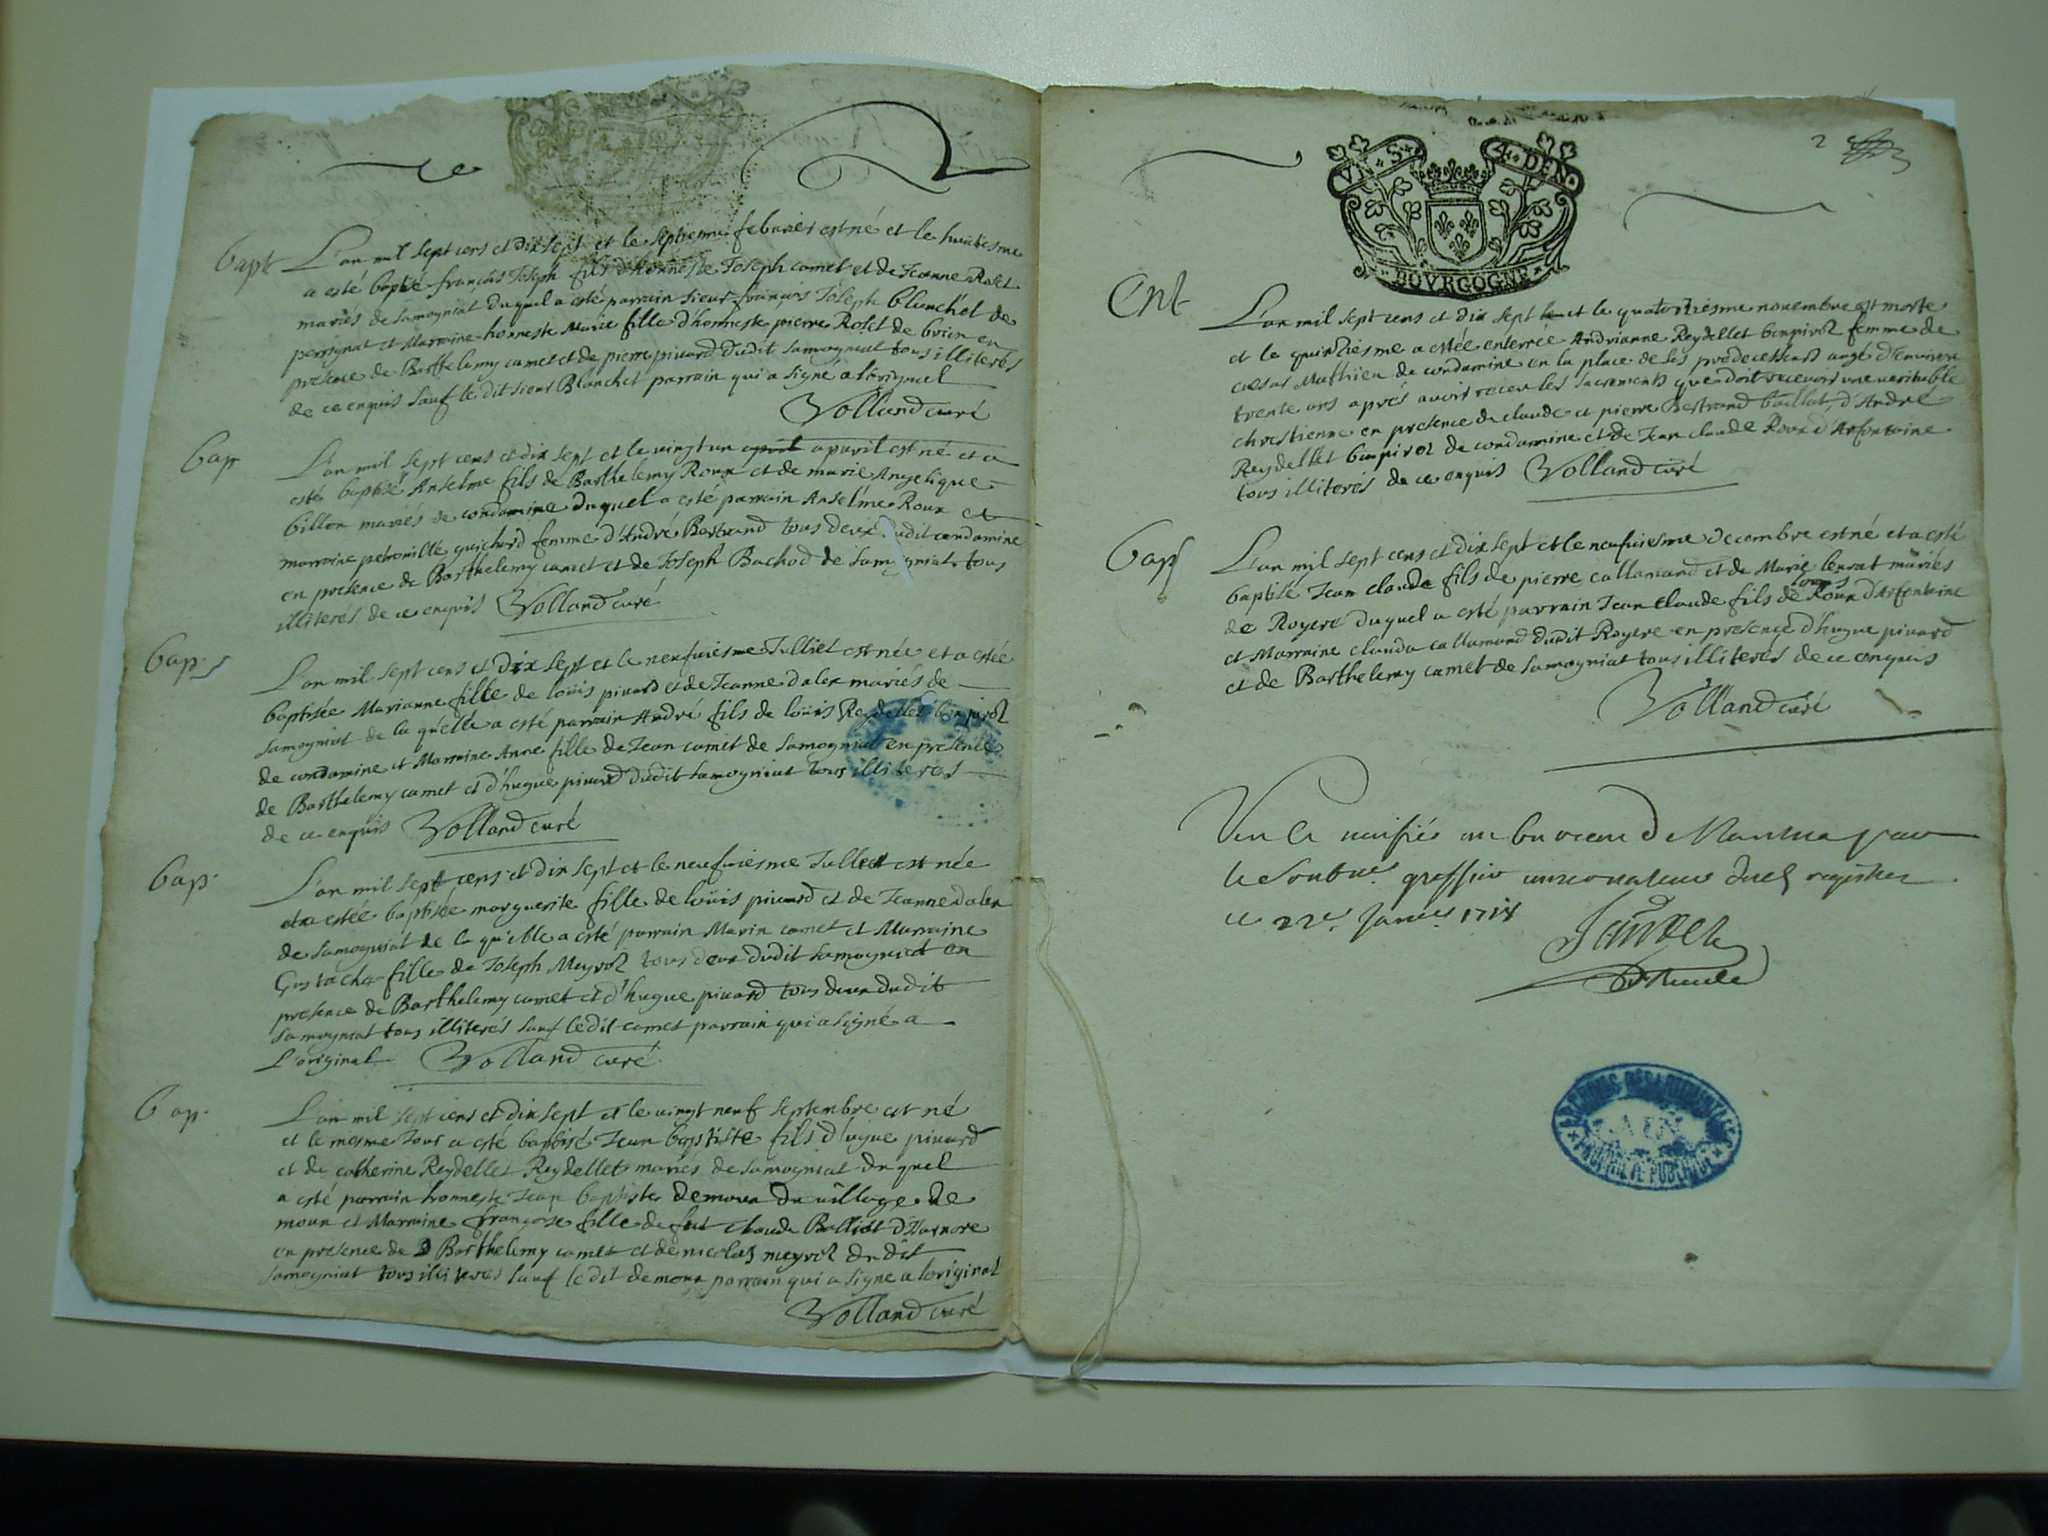 Bapt L'an mil sept cens et dix sept et le septieme febvrier est né et le huitiesme
a esté baptisé françois Joseph fils d'honneste Joseph camet et de Jeanne Rolet
mariés de samogniat duquel a esté parrain sieur françois Joseph blanchet de
perrignat et Marraine honneste Marie fille d'honneste pierre Rolet de brion en
presence de Barthelemy camet et de pierre pivard dudit samogniat tous illiterés
de ce enquis sauf ledit sieur Blanchet parrain qui a signé a l'original
Volland curé
Bap L'an mil sept cens et dix sept et le vingt un apvril est né et a
esté baptisé Anselme fils de Barthelemy Roux et de marie Angelique
billon mariés de condamine duquel a esté parrain Anselme Roux et
marraine petronille guichard femme d'André Bertrand tous deux dudit condamine
en presence de Barthelemy camet et de Joseph Bachod de samogniat tous
illiterés de ce enquis Volland curé
Bap L'an mil sept cens et dix sept et le neufviesme Julliet est née et a estée
baptisée Marianne fille de loüis pivard et de Jeanne dalex mariés de
samogniat de laquelle a esté parrain André fils de loüis Reydellet bonpirol
de condamine et Marraine Anne fille de Jean camet de samogniat en presence
de Barthelemy camet et d'hugue pivard dudit samogniat tous illiteres
de ce enquis Volland curé
Bap. L'an mil sept cens et dix sept et le neufviesme Julliet est née
et a estée baptisée marguerite fille de loüis pivard et de Jeanne dalex
de samogniat de laquelle a esté parrain Marin camet et Marraine
fille de Joseph Meyrol tous deux dudit samogniat en
presence de Barthelemy camet et d'hugue pivard tous deux dudit
samogniat tous illiterés sauf ledit camet parrain qui a signé a
L'original Volland curé
Bap. L'an mil sept cens et dix sept et le vingt neuf septembre est né
et le mesme Jour a esté baptisé Jean baptiste fils d'hugue pivard
et de catherine Reydellet Reydellet mariés de samogniat duquel
a esté parrain honneste Jean baptiste demoux du village de
moux et Marraine françoise fille de feu claude Balliot d'
en presence de Barthelemy camet et de nicolas meyrol dudit
samogniat tous illiteres sauf ledit demoux parrain qui a signé a l'original
Volland curé
2
VN S 4 DEN
BOVRGOGNE
Ent L'an mil sept cens et dix sept et le quatorziesme novembre est morte
et le quinziesme a estée enterrée Andrianne Reydellet bonpirol femme de
cesar Mathieu de condamine en la place de ses predecesseurs âgé d'environ
trente ans après avoir receu les sacrements que doit recevoir une veritable
chrestienne en presence de claude et pierre Bertrand baillat, d'André
Reydellet bonpirol de condamine et de Jean claude Roux d'Arfontaine
tous illiterés de ce enquis Volland curé
Bap L'an mil sept cens et dix sept et le neufviesme decembre est né et a esté
baptisé Jean claude fils de pierre callamand et de Marie levrat mariés
de Royere duquel a esté parrain Jean claude fils de loüis Roux d'Arfontaine
et Marraine clauda callamand dudit Royere en presence d'hugue pivard
et de Barthelemy camet de samogniat tous illiteres de ce enquis
Volland curé
Veu et verifié au bureau de Nantua par
le soubné. greffier conservateur desd registres
ce 22e. Janvier 1718
ARCHIVES DÉPARTEMENTALES
AIN
PROPRIÉTÉ PUBLIQUE